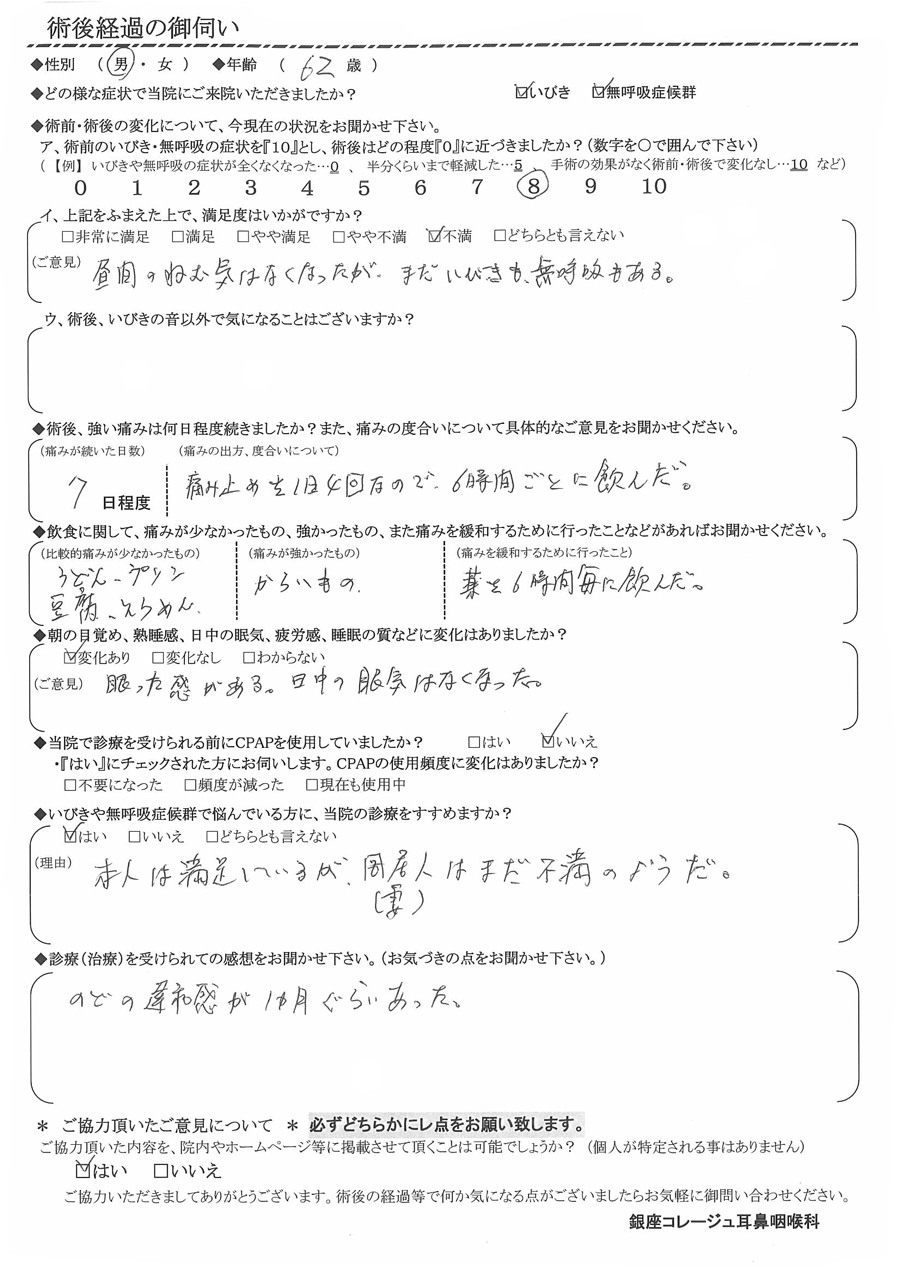 術後経過の御伺い
◆性別 ( 男 ・ 女 ) ◆年齢 ( 62 歳 )
◆どの様な症状で当院にご来院いただきましたか? ☑いびき ☑無呼吸症候群
◆術前・術後の変化について、今現在の状況をお聞かせ下さい。
ア、術前のいびき・無呼吸の症状を『10』とし、術後はどの程度『0』に近づきましたか?(数字を〇で囲んで下さい)
(【例】いびきや無呼吸の症状が全くなくなった…0 、 半分くらいまで軽減した…5 、 手術の効果がなく術前・術後で変化なし…10 など)
0 1 2 3 4 5 6 7 8 9 10
イ、上記をふまえた上で、満足度はいかがですか?
□非常に満足 □満足 □やや満足 □やや不満 ☑不満 □どちらとも言えない
(ご意見) 昼間のねむ気はなくなったが、まだいびきも、無呼吸もある。
ウ、術後、いびきの音以外で気になることはございますか?
◆術後、強い痛みは何日程度続きましたか?また、痛みの度合いについて具体的なご意見をお聞かせください。
(痛みが続いた日数) (痛みの出方、度合いについて)
7 日程度 痛み止めを1日4回なので、6時間ごとに飲んだ。
◆飲食に関して、痛みが少なかったもの、強かったもの、また痛みを緩和するために行ったことなどがあればお聞かせください。
(比較的痛みが少なかったもの) (痛みが強かったもの) (痛みを緩和するために行ったこと)
うどん、プリン からいもの. 薬を6時間毎に飲んだ。
豆腐、そうめん、
◆朝の目覚め、熟睡感、日中の眠気、疲労感、睡眠の質などに変化はありましたか?
☑変化あり □変化なし □わからない
(ご意見) 眠った感がある。日中の眠気はなくなった。
◆当院で診療を受けられる前にCPAPを使用していましたか? □はい ☑いいえ
・『はい』にチェックされた方にお伺いします。CPAPの使用頻度に変化はありましたか?
□不要になった □頻度が減った □現在も使用中
◆いびきや無呼吸症候群で悩んでいる方に、当院の診療をすすめますか?
☑はい □いいえ □どちらとも言えない
(理由) 本人は満足しているが、同居人はまだ不満のようだ。
(妻)
◆診療(治療)を受けられての感想をお聞かせ下さい。(お気づきの点をお聞かせ下さい。)
のどの違和感が1カ月ぐらいあった。
＊ ご協力頂いたご意見について ＊ 必ずどちらかにレ点をお願い致します。
ご協力頂いた内容を、院内やホームページ等に掲載させて頂くことは可能でしょうか? (個人が特定される事はありません)
☑はい □いいえ
ご協力いただきましてありがとうございます。術後の経過等で何か気になる点がございましたらお気軽に御問い合わせください。
銀座コレージュ耳鼻咽喉科